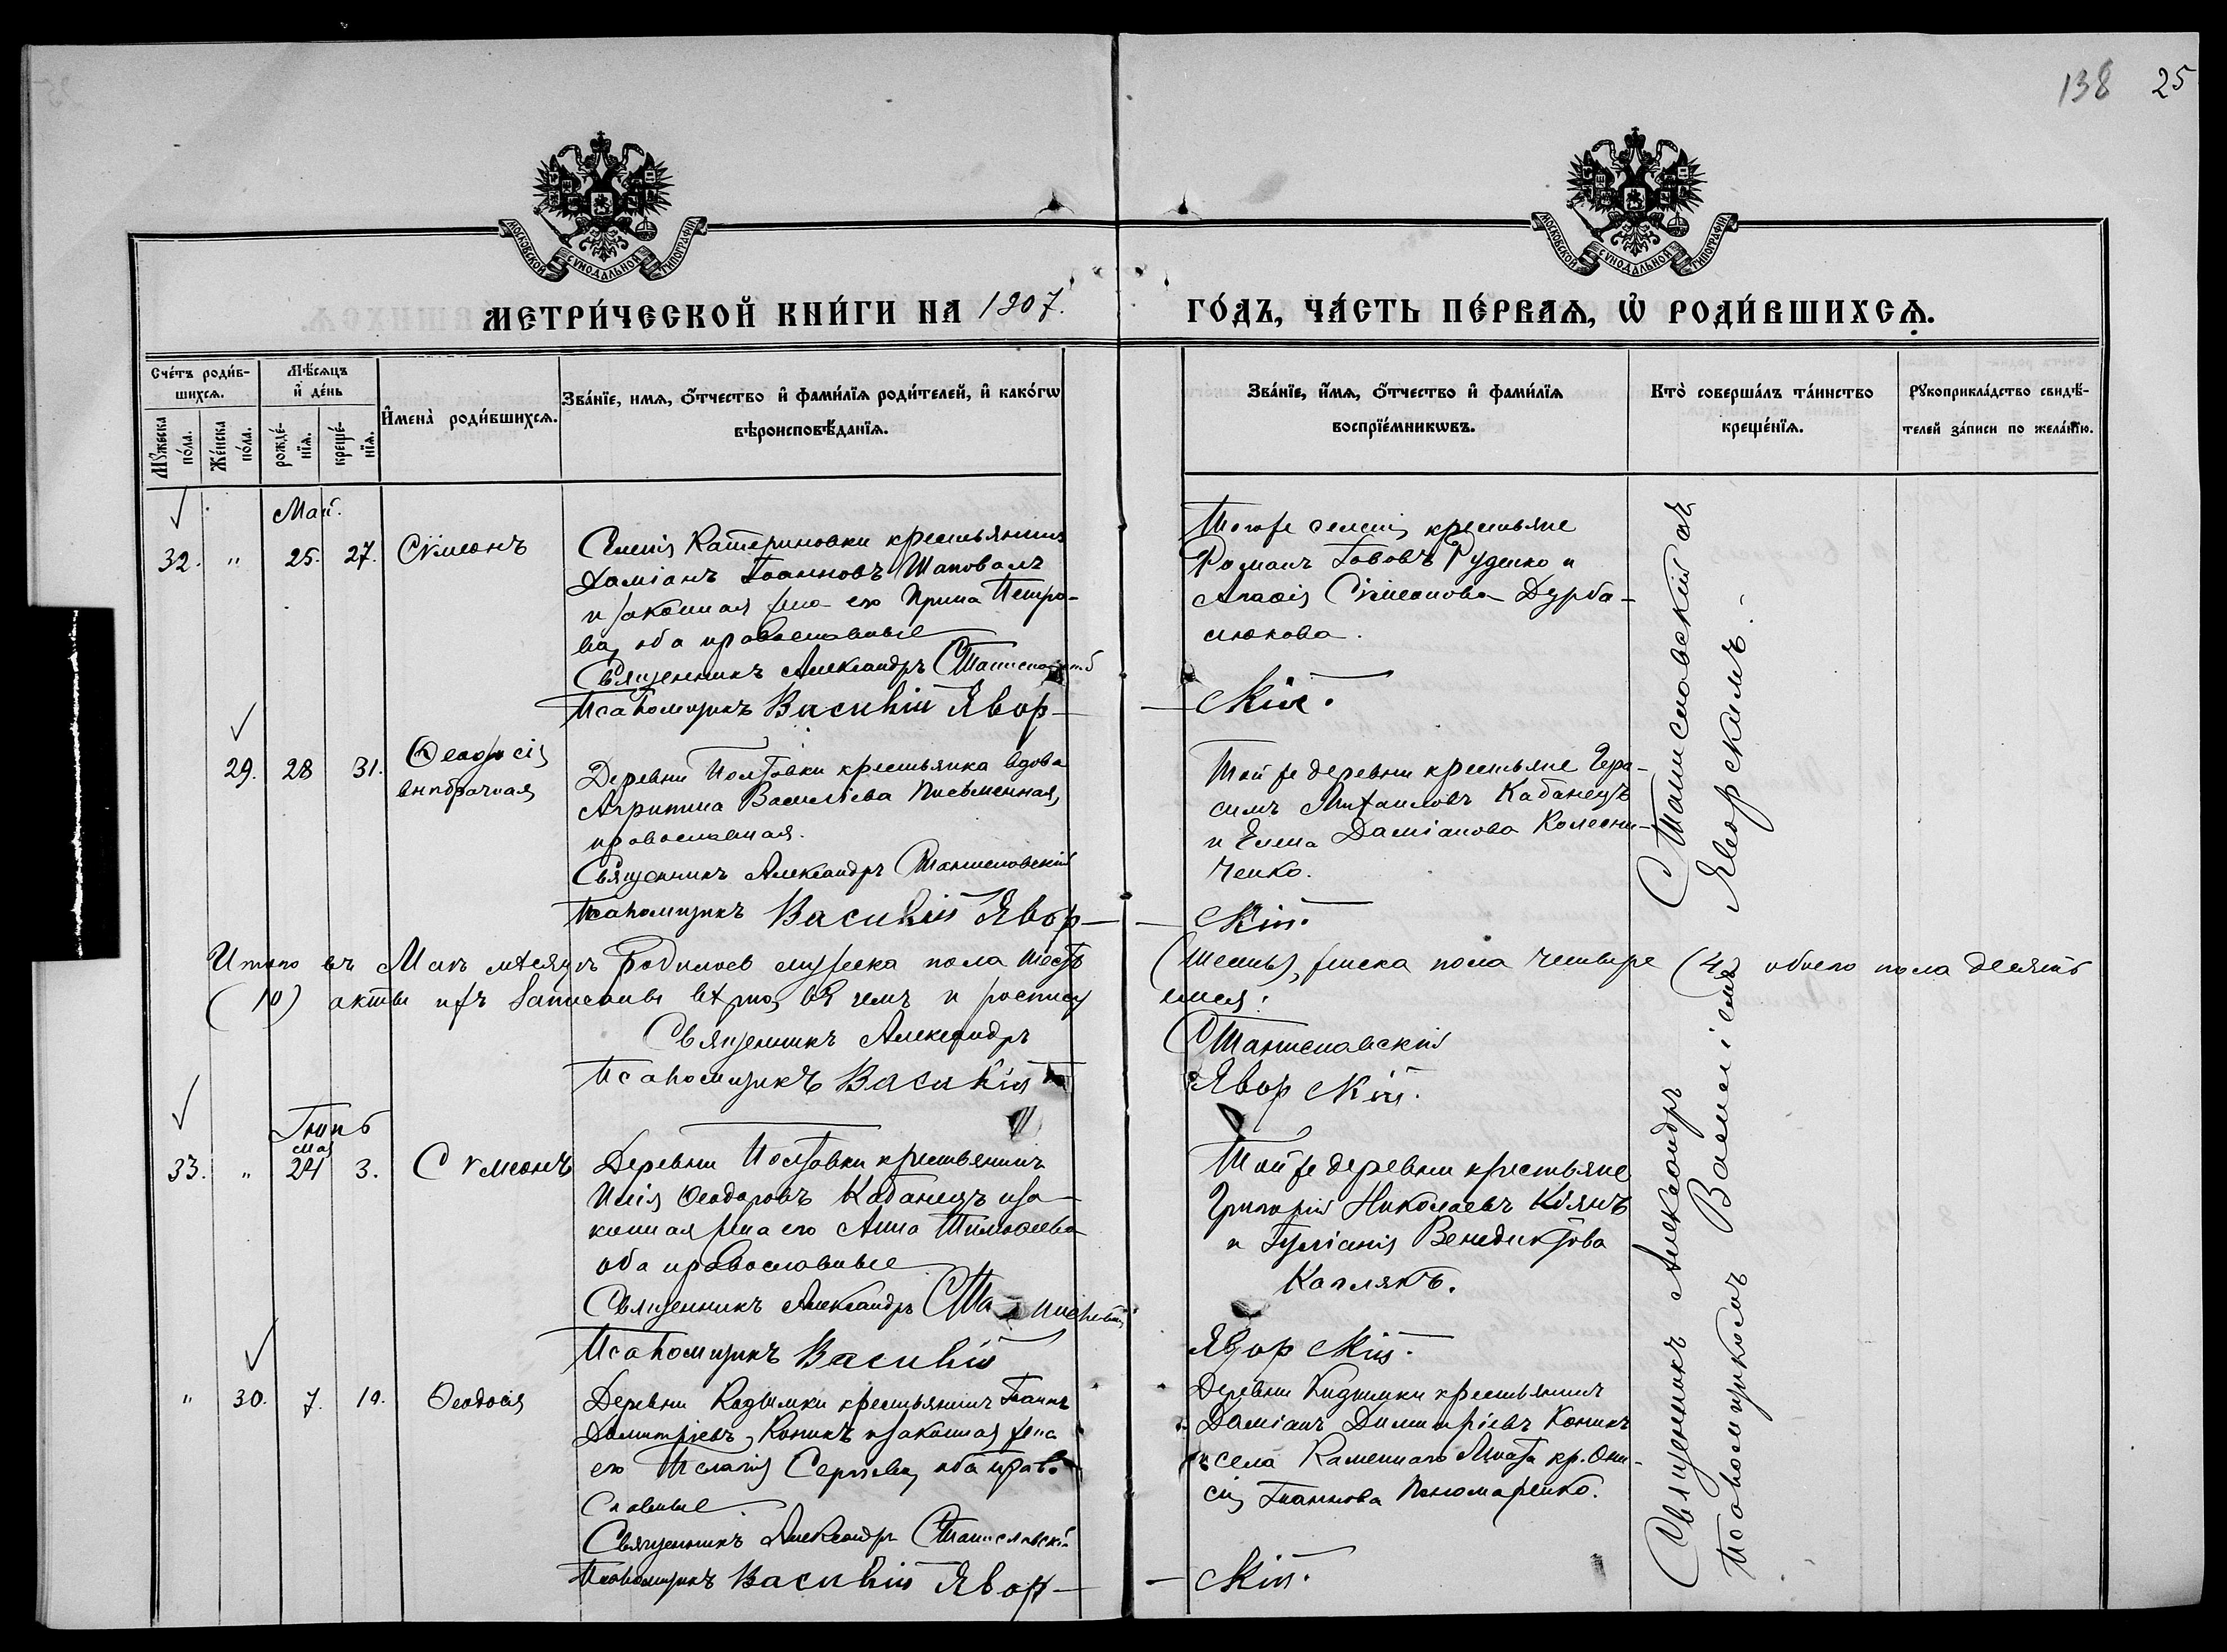 138 25
МОСКОВСКОЙ СѴНОДАЛЬНОЙ ТИПОГРАФІИ
МОСКОВСКОЙ СѴНОДАЛЬНОЙ ТИПОГРАФІИ
МЕТРИ́ЧЕСКОЙ КНИ́ГИ НА 1907.
ГО́ДЪ, ЧА́СТЬ ПЕ́РВАѦ, Ѡ҆ РОДИ́ВШИХСѦ.
Сче́тъ роди́в-
шихсѧ.
Мꙋ́жеска
по́ла.
Же́нска
по́ла.
Мѣ́сѧцъ
и҆ де́нь
рожде́-
нїѧ.
креще́-
нїѧ.
И҆мена̀ роди́вшихсѧ.
Зва́нїе, имѧ, ѻ҆́тчество и҆ фами́лїѧ роди́телей, и҆ како́гѡ
вѣроисповѣ́данїѧ.
Зва́нїе, и҆́мѧ, ѻ҆́тчество и҆ фами́лїѧ
воспрїе́мникѡвъ.
Кто̀ соверша́лъ та́инство
креще́нїѧ.
Рꙋкоприкла́дство свидѣ́-
телей за́писи по жела́нїю.
Май.
32. " 25. 27. Сѵмеонъ
Селенія Катериновки крестьянинъ
Даміанъ Іоанновъ Шаповалъ
и законная жена его Ирина Петро-
ва, оба православные
Священникъ Александръ Станиславскій
Псаломщикъ Василій Явор-
Тогоже селенія крестьяне
Романъ Іововъ Руденко и
Агафія Сѵмеонова Дурба-
люкова.
скій.
29. 28 31. Ѳеодосія
внѣбрачная
Деревни Полтавки крестьянка вдова
Агрипина Васильева Письменная,
православная.
Священникъ Александръ Станиславскій
Псаломщикъ Василій Явор-
Той же деревни крестьяне Гера-
симъ Михаиловъ Кабанецъ
и Елена Даміанова Колесни-
ченко.
скій.
Итого въ Маѣ мѣсяцѣ родилось мужеска пола шесть (шесть), женска пола четыре (4) обоего пола десять
(10) акты ихъ записаны вѣрно, въ чемъ и росписуемся:
Священникъ Александръ Станиславскій
Псаломщикъ Василій Яворскій.
Іюнь
мая
33. " 24 3. Сѵмеонъ
Деревни Полтавки крестьянинъ
Илія Ѳеодоровъ Кабанецъ и за-
конная жена его Анна Тимоѳеева
оба православные
Священникъ Александръ Станиславскій
Псаломщикъ Василій
Той же деревни крестьяне
Григорій Николаевъ
и Іуліанія Венедиктова
Каплякъ.
Яворскій.
" 30. 7. 10. Ѳеодосія
Деревни Кадымки крестьянинъ Іоаннъ
Димитріевъ Коникъ и законная жена
его Пелагія Сергіева, оба право-
славные
Священникъ Александръ Станиславскій
Псаломщикъ Василій Явор-
Деревни Кадымки крестьянинъ
Даміанъ Димитріевъ Коникъ
и села Каменнаго Моста кр. Они-
сія Іоаннова Пономаренко.
скій.
Священникъ Александръ Станиславскій съ
Псаломщикомъ Василіемъ Яворскимъ.